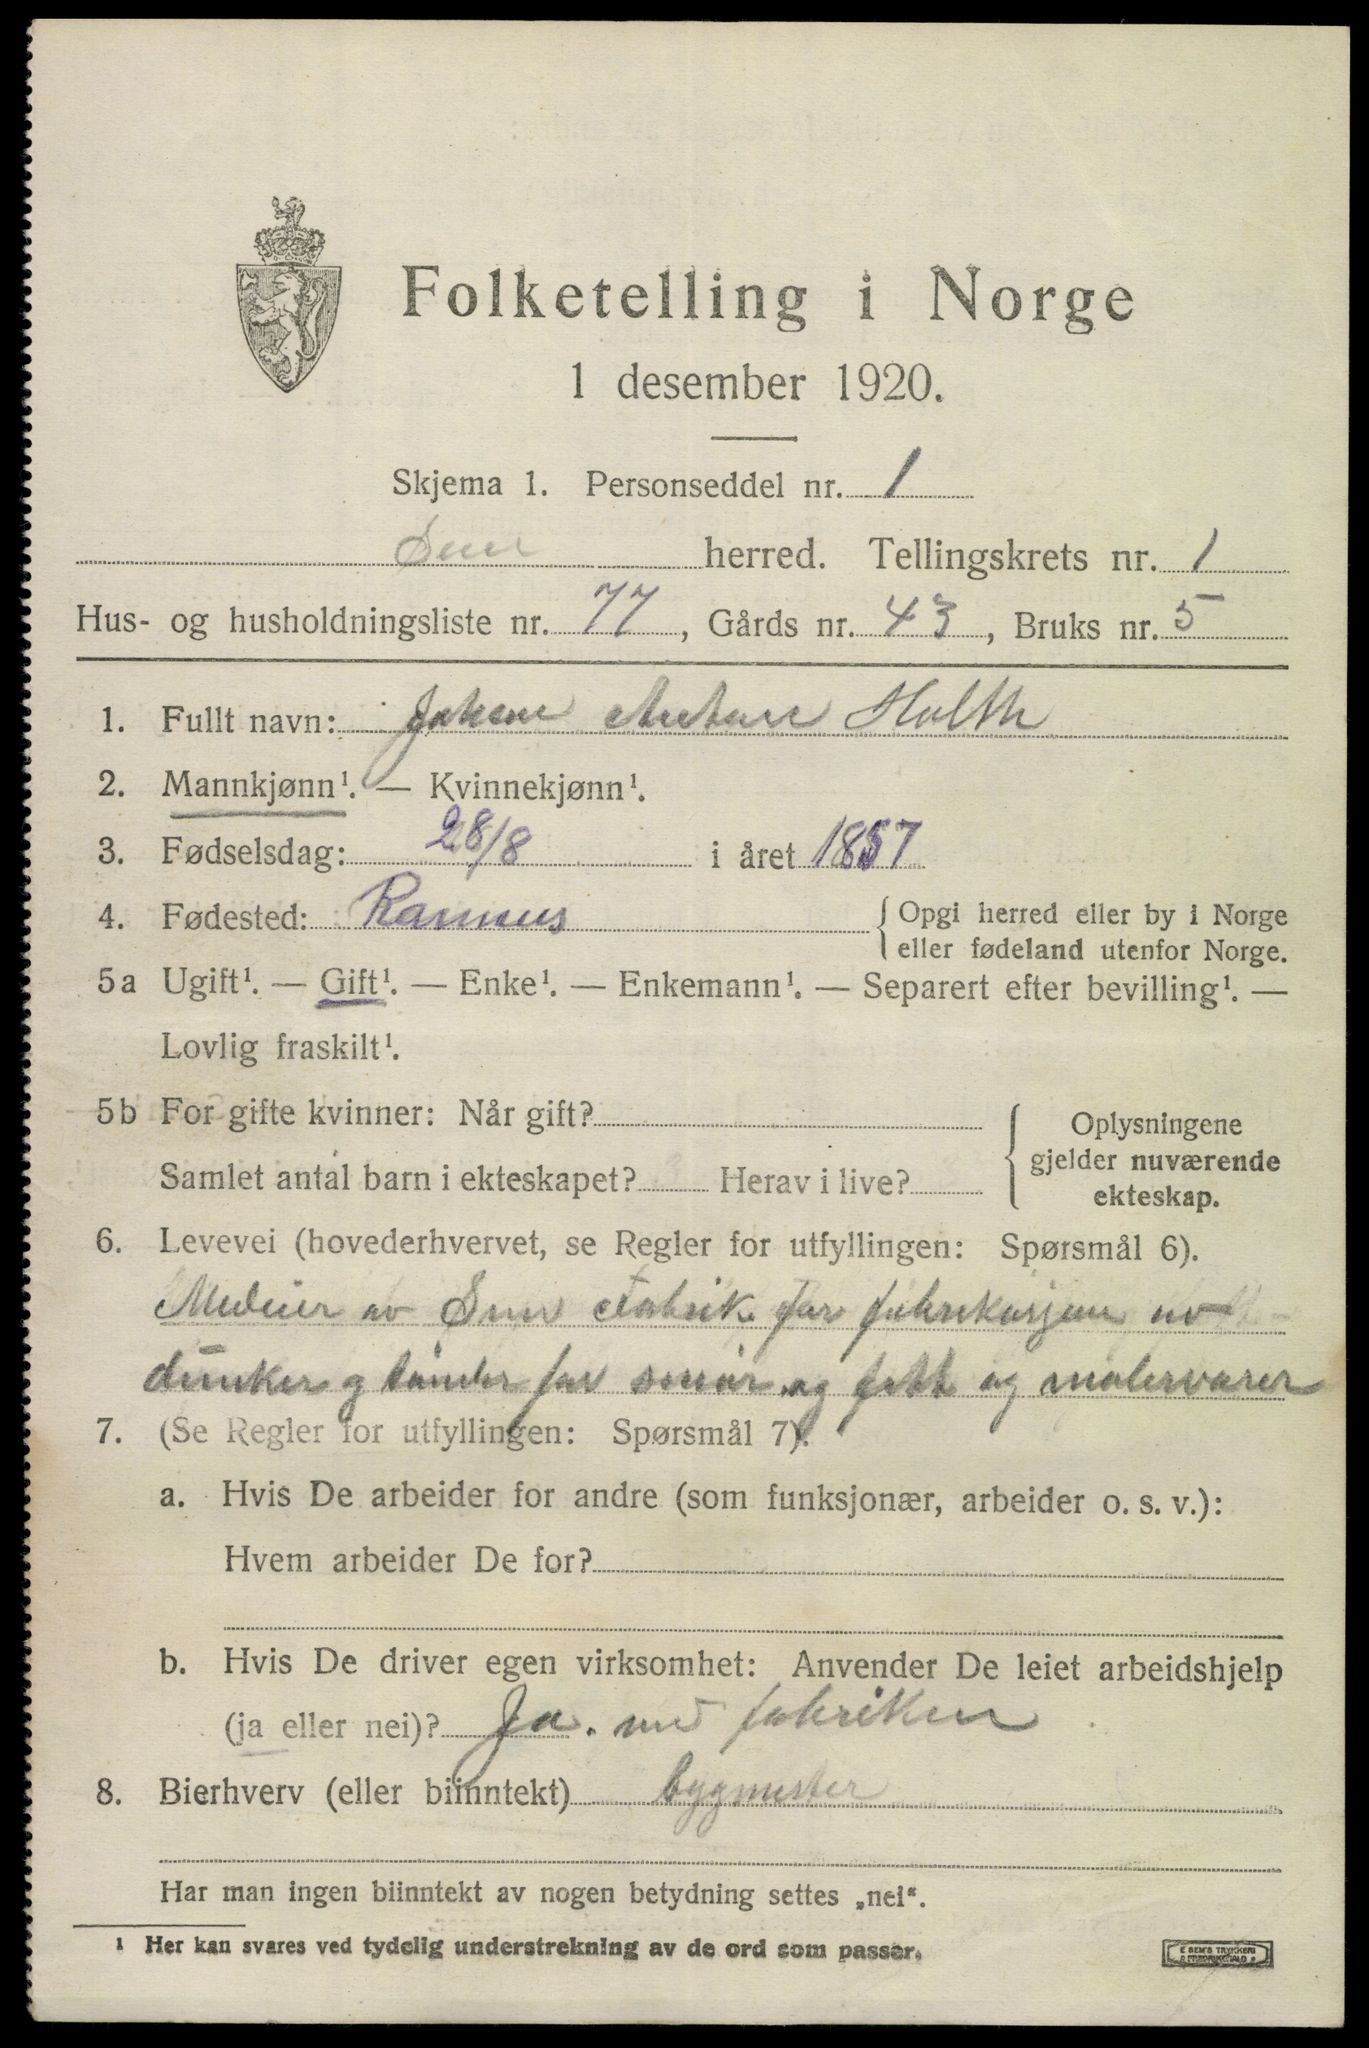 Folketelling i Norge
1 desember 1920.
Skjema 1. Personseddel nr. 1
Sem herred. Tellingskrets nr. 1
Hus- og husholdningsliste nr. 77, Gårds nr. 43, Bruks nr. 5
1. Fullt navn: Johan Anton Holth
2. Mannkjønn¹. — Kvinnekjønn¹.
3. Fødselsdag: 28/8 i året 1857
4. Fødested: Ramnes { Opgi herred eller by i Norge
eller fødeland utenfor Norge.
5a Ugift¹. — Gift¹. — Enke¹. — Enkemann¹. — Separert efter bevilling¹. —
Lovlig fraskilt¹.
5b For gifte kvinner: Når gift? { Oplysningene
gjelder nuværende
Samlet antal barn i ekteskapet? Herav i live?
ekteskap.
6. Levevei (hovederhvervet, se Regler for utfyllingen: Spørsmål 6).
Medeier av Sem Fabrik for fabrikasjon av
dunker og tønder for smør og fett og malervarer
7. (Se Regler for utfyllingen: Spørsmål 7).
a. Hvis De arbeider for andre (som funksjonær, arbeider o. s. v.):
Hvem arbeider De for?
b. Hvis De driver egen virksomhet: Anvender De leiet arbeidshjelp
(ja eller nei)? Ja. ved fabriken
8. Bierhverv (eller biinntekt) bygmester
Har man ingen biinntekt av nogen betydning settes „nei“.
¹ Her kan svares ved tydelig understrekning av de ord som passer.
E SEM'S TRYKKERI
FREDRIKSHALD